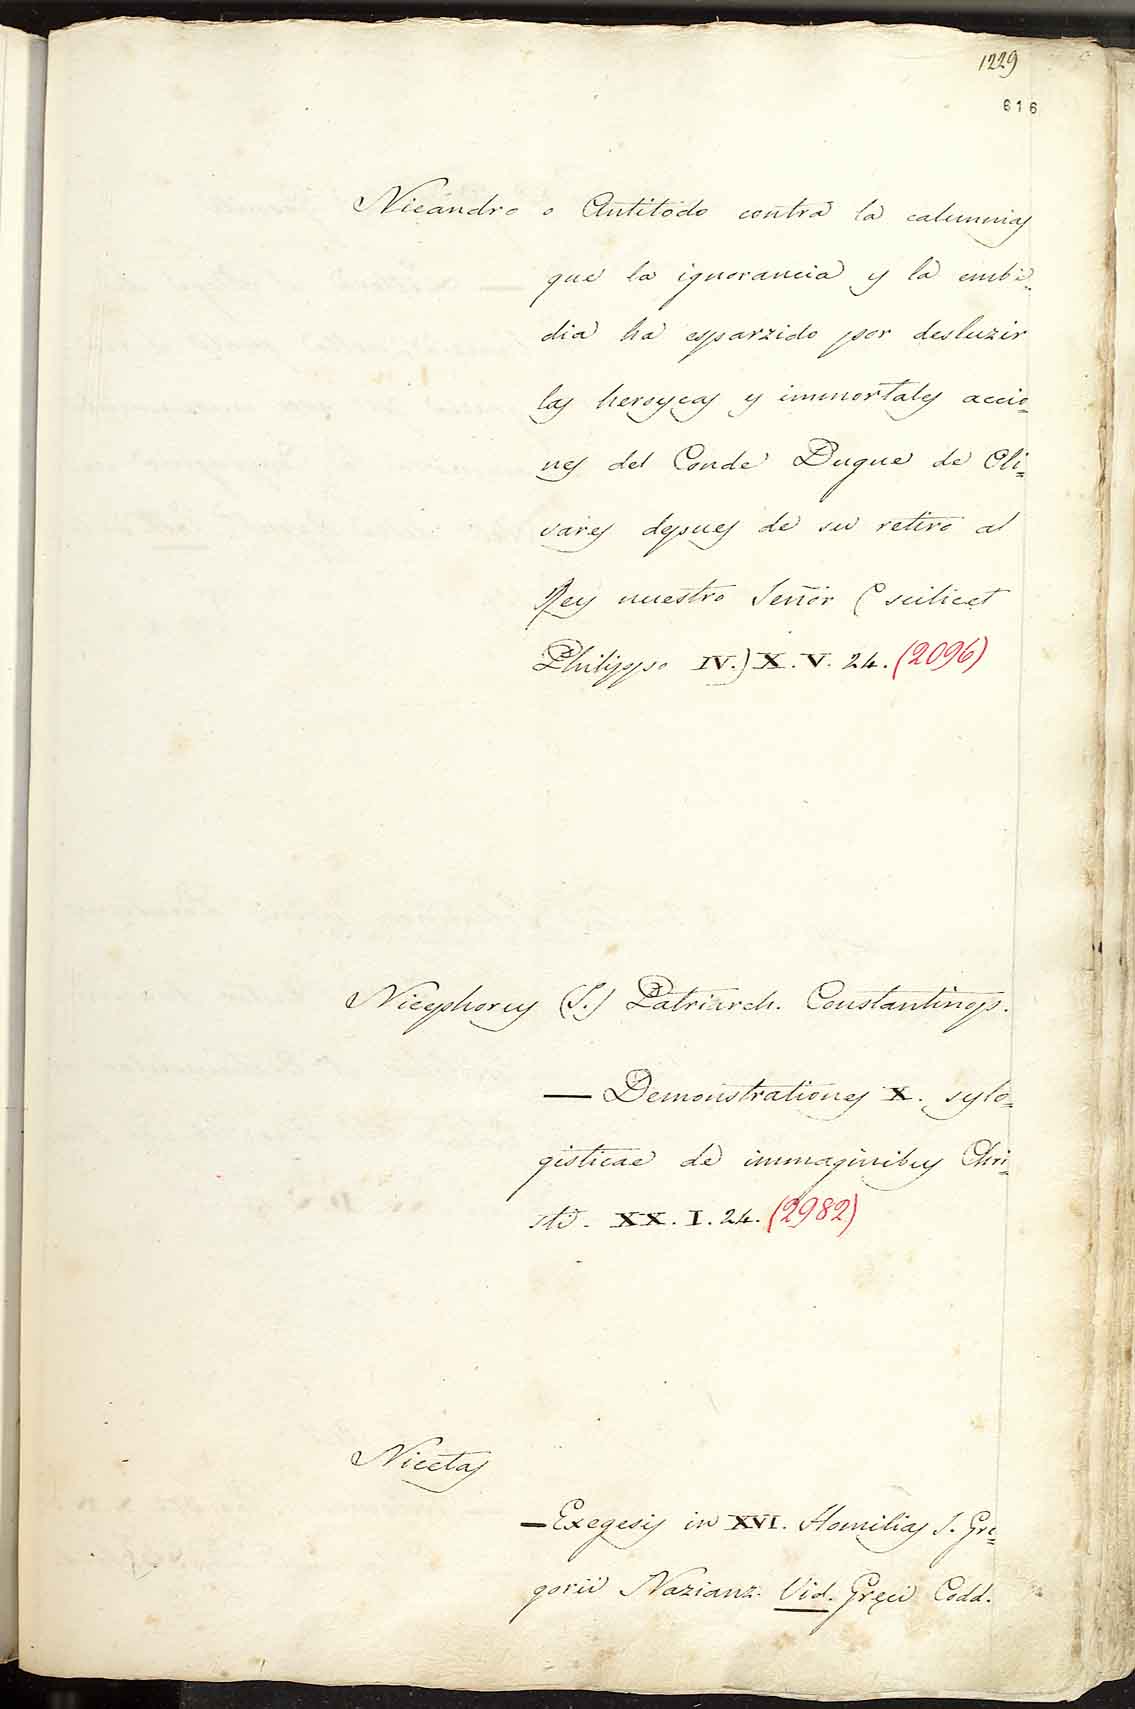 1229
616
Nicandro o Antitodo contra la calumnias
que la ignorancia y la embi-
dia ha esparzido por desluzir
las heroycas y immortales accio-
nes del Conde Duque de Oli-
vares depues de su retiro al
Rey nuestro Señor (scilicet
Philippo IV.) X. V. 24. (2096)
Nicephorus (S.) Patriarch. Constantinop.
— Demonstrationes X. sylo-
gisticae de immaginibus Chri-
sti. XX. I. 24. (2982)
Nicetas
— Exegesis in XVI. Homilias S. Gre-
gorii Nazianz. Vid. Gręci Codd.